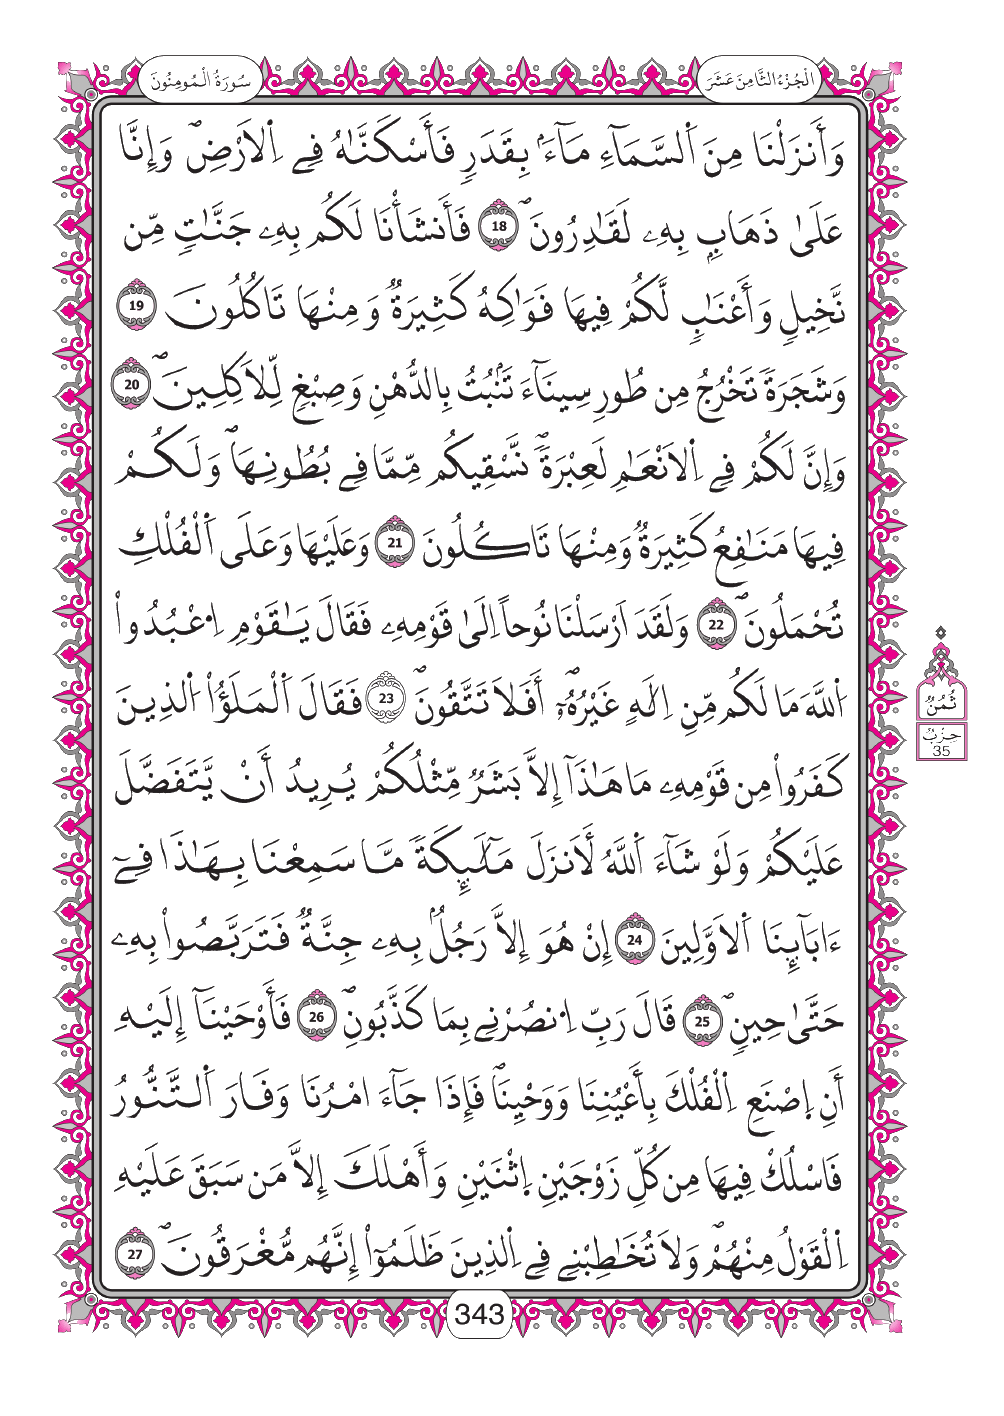 الْجُزْءُ الثَّامِنَ عَشَرَ
سُورَةُ الْمُومِنُونَ
وَأَنزَلْنَا مِنَ اَ۬لسَّمَآءِ مَآءَۢ بِقَدَرٖ فَأَسْكَنَّٰهُ فِے اِ۬لَارْضِۖ وَإِنَّا
عَلَىٰ ذَهَابِۢ بِهِۦ لَقَٰدِرُونَۖ 18 فَأَنشَأْنَا لَكُم بِهِۦ جَنَّٰتٖ مِّن
نَّخِيلٖ وَأَعْنَٰبٖ لَّكُمْ فِيهَا فَوَٰكِهُ كَثِيرَةٞ وَمِنْهَا تَاكُلُونَ 19
وَشَجَرَةٗ تَخْرُجُ مِن طُورِ سِينَآءَ تَنۢبُتُ بِالدُّهْنِ وَصِبْغٖ لِّلَاكِلِينَۖ 20
وَإِنَّ لَكُمْ فِے اِ۬لَانْعَٰمِ لَعِبْرَةٗۖ نَّسْقِيكُم مِّمَّا فِے بُطُونِهَاۖ وَلَكُمْ
فِيهَا مَنَٰفِعُ كَثِيرَةٞ وَمِنْهَا تَاكُلُونَ 21 وَعَلَيْهَا وَعَلَى اَ۬لْفُلْكِ
تُحْمَلُونَۖ 22 وَلَقَدَ اَرْسَلْنَا نُوحاً اِلَىٰ قَوْمِهِۦ فَقَالَ يَٰقَوْمِ اِ۟عْبُدُواْ
اُ۬للَّهَ مَا لَكُم مِّنِ اِلَٰهٍ غَيْرُهُۥٓۖ أَفَلَا تَتَّقُونَۖ 23 فَقَالَ اَ۬لْمَلَؤُاْ اُ۬لذِينَ
كَفَرُواْ مِن قَوْمِهِۦ مَا هَٰذَآ إِلَّا بَشَرٞ مِّثْلُكُمْ يُرِيدُ أَنْ يَّتَفَضَّلَ
عَلَيْكُمْ وَلَوْ شَآءَ اَ۬للَّهُ لَأَنزَلَ مَلَٰٓئِكَةٗ مَّا سَمِعْنَا بِهَٰذَا فِےٓ
ءَابَآئِنَا اَ۬لَاوَّلِينَ 24 إِنْ هُوَ إِلَّا رَجُلُۢ بِهِۦ جِنَّةٞ فَتَرَبَّصُواْ بِهِۦ
حَتَّىٰ حِينٖۖ 25 قَالَ رَبِّ اِ۟نصُرْنِے بِمَا كَذَّبُونِۖ 26 فَأَوْحَيْنَآ إِلَيْهِ
أَنِ اِ۪صْنَعِ اِ۬لْفُلْكَ بِأَعْيُنِنَا وَوَحْيِنَاۖ فَإِذَا جَآءَ امْرُنَا وَفَارَ اَ۬لتَّنُّورُ
فَاسْلُكْ فِيهَا مِن كُلِّ زَوْجَيْنِ اِ۪ثْنَيْنِ وَأَهْلَكَ إِلَّا مَن سَبَقَ عَلَيْهِ
اِ۬لْقَوْلُ مِنْهُمْۖ وَلَا تُخَٰطِبْنِے فِے اِ۬لذِينَ ظَلَمُوٓاْ إِنَّهُم مُّغْرَقُونَۖ 27
ثُمُنُ
حِزْبُ
35
343